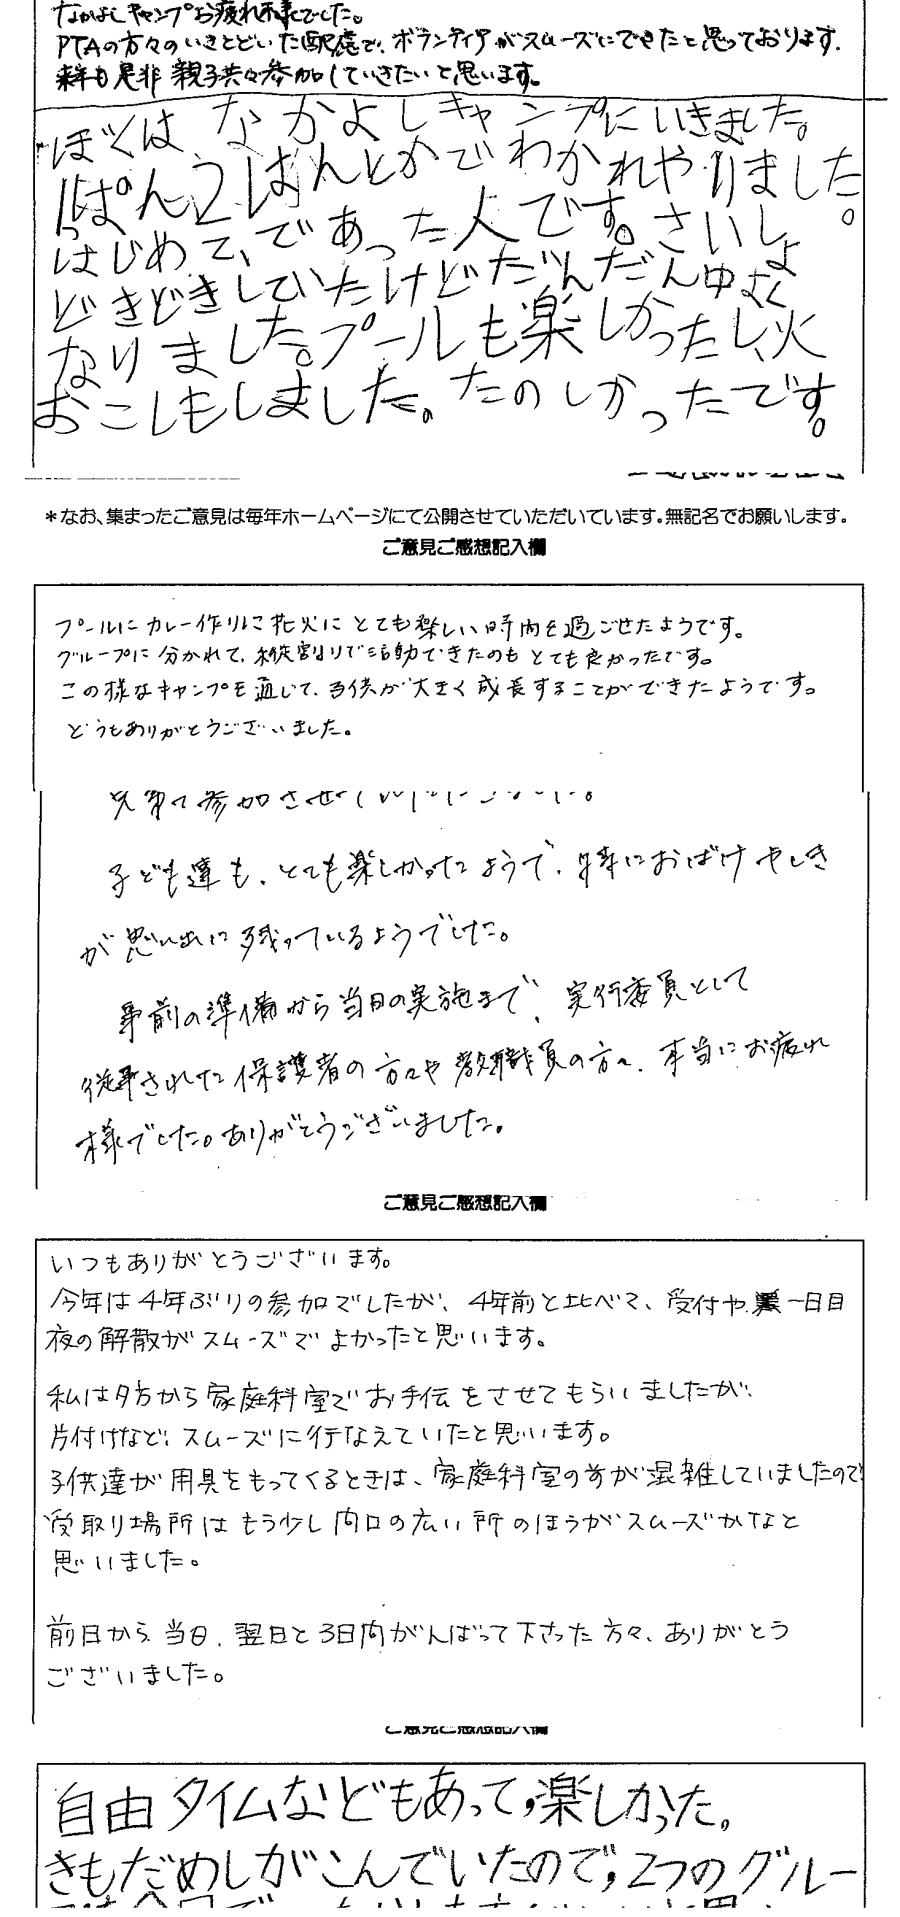 なかよしキャンプお疲れ様でした。
PTAの方々のいきとどいた配慮で、ボランティアがスムーズにできたと思っております。
来年も是非 親子共々参加していきたいと思います。
ぼくは なかよしキャンプにいきました。
1ぱん2はんとかでわかれやりました。
はじめて、であった人です。さいしょ
どきどきしていたけどだんだんゆよく
なりました。プールも楽しかったし、火
おこしもしました。たのしかったです。
＊なお、集まったご意見は毎年ホームページにて公開させていただいています。無記名でお願いします。
ご意見ご感想記入欄
プールにカレー作りに花火にとても楽しい時間を過ごせたようです。
グループに分かれて、縦割りで活動できたのもとても良かったです。
この様なキャンプを通じて、子供が大きく成長することができたようです。
どうもありがとうございました。
兄弟で参加させて
子ども達も、とても楽しかったようで、特におばけやしき
が思い出に残っているようでした。
事前の準備から当日の実施まで、実行委員として
従事された保護者の方々や教職員の方々、本当にお疲れ
様でした。ありがとうございました。
ご意見ご感想記入欄
いつもありがとうございます。
今年は4年ぶりの参加でしたが、4年前と比べて、受付や 一日目
夜の解散がスムーズでよかったと思います。
私は夕方から家庭科室でお手伝をさせてもらいましたが、
片付けなど、スムーズに行なえていたと思います。
子供達が用具をもってくるときは、家庭科室の方が混雑していましたので
受取り場所はもう少し間口の広い所のほうがスムーズかなと
思いました。
前日から、当日、翌日と3日間がんばって下さった方々、ありがとう
ございました。
ご意見ご感想記入欄
自由タイムなどもあって、楽しかった。
きもだめしがこんでいたので、2つのグルー